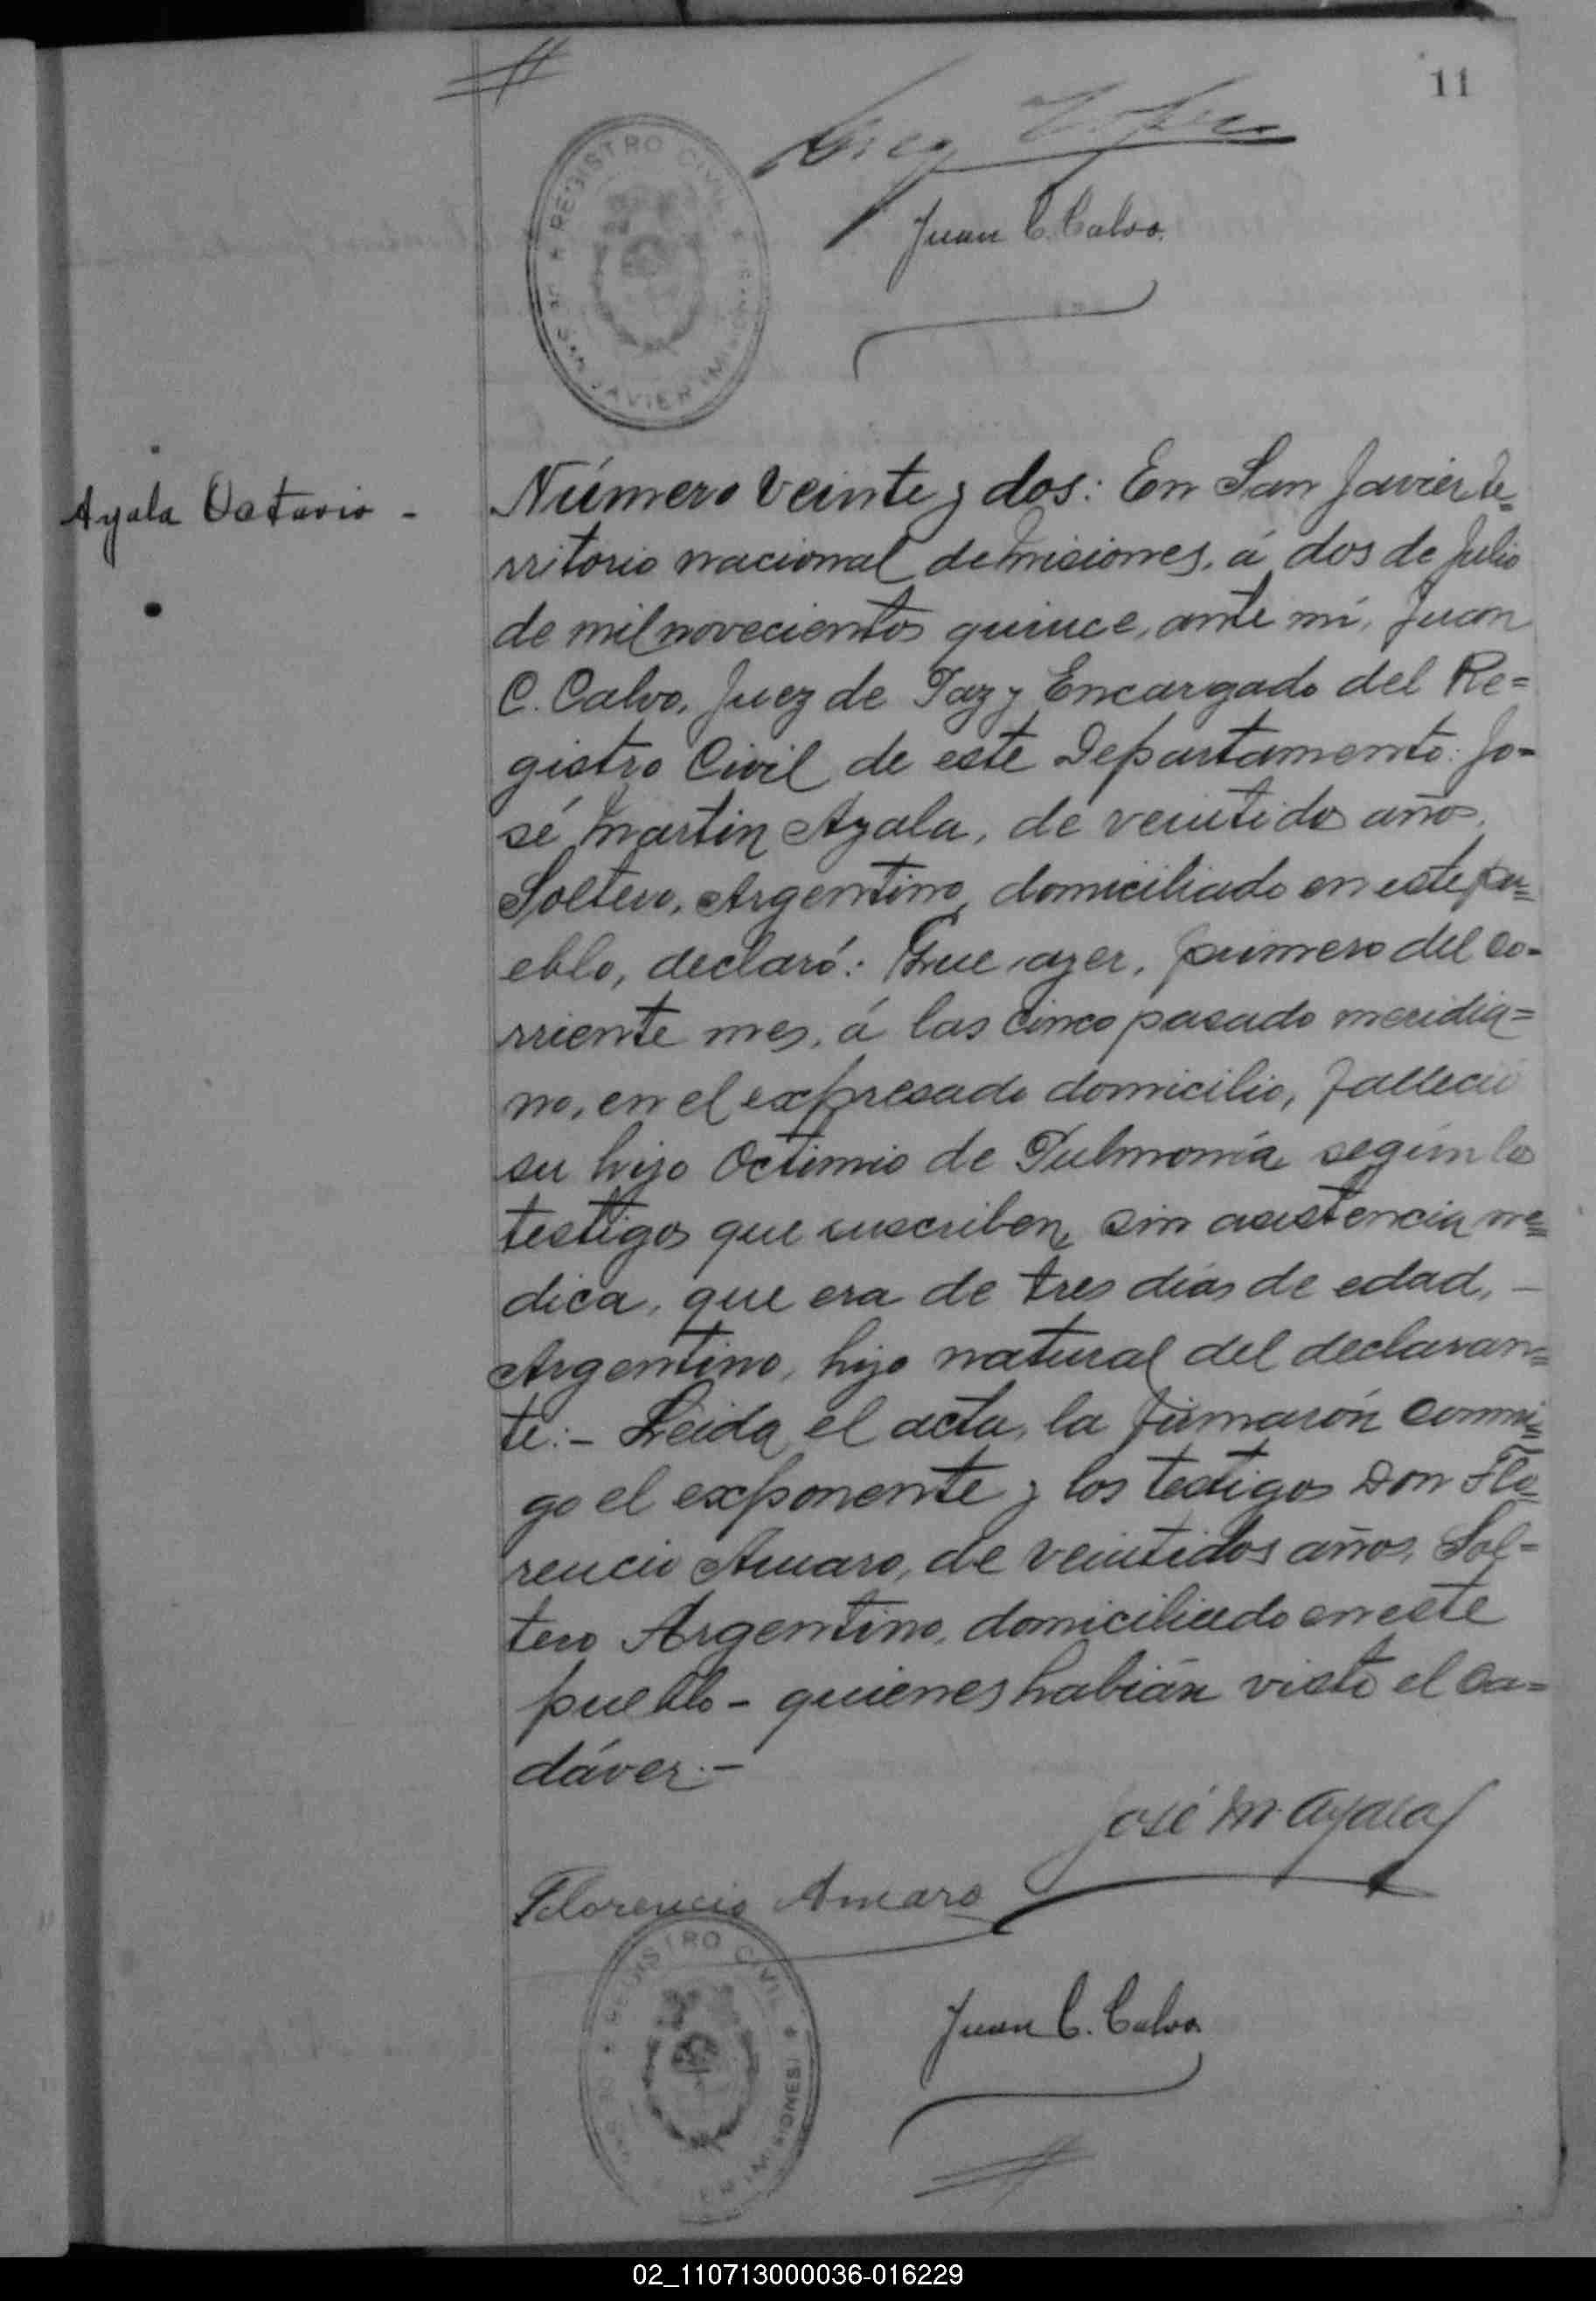 11
REGISTRO CIVIL
DE SAN JAVIER (MISIONES)
Juan C. Calvo.
Ayala Octavio -
Número Veinte y dos: En San Javier te=
rritorio nacional de Misiones, á dos de Julio
de mil novecientos quince, ante mí, Juan
C. Calvo, Juez de Paz y Encargado del Re=
gistro Civil de este Departamento: Jo=
sé Martin Ayala, de veintidos años,
Soltero, Argentino, domiciliado en este pu=
eblo, declaró: Que ayer, primero del co-
rriente mes, á las cinco pasado meridia=
no, en el expresado domicilio, falleció
su hijo Octimio de Pulmonía según los
testigos que suscriben, sin asistencia me=
dica, que era de tres días de edad, -
Argentino, hijo natural del declaran=
te:- Leida el acta, la firmarón conmi=
go el exponente y los testigos Don Flo=
rencio Amaro, de veintidos años, Sol-
tero Argentino, domiciliado en este
pueblo - quienes habián visto el ca=
dáver.-
José M. Ayala
Florencio Amaro
REGISTRO CIVIL
(MISIONES)
Juan C. Calvo.
02_110713000036-016229